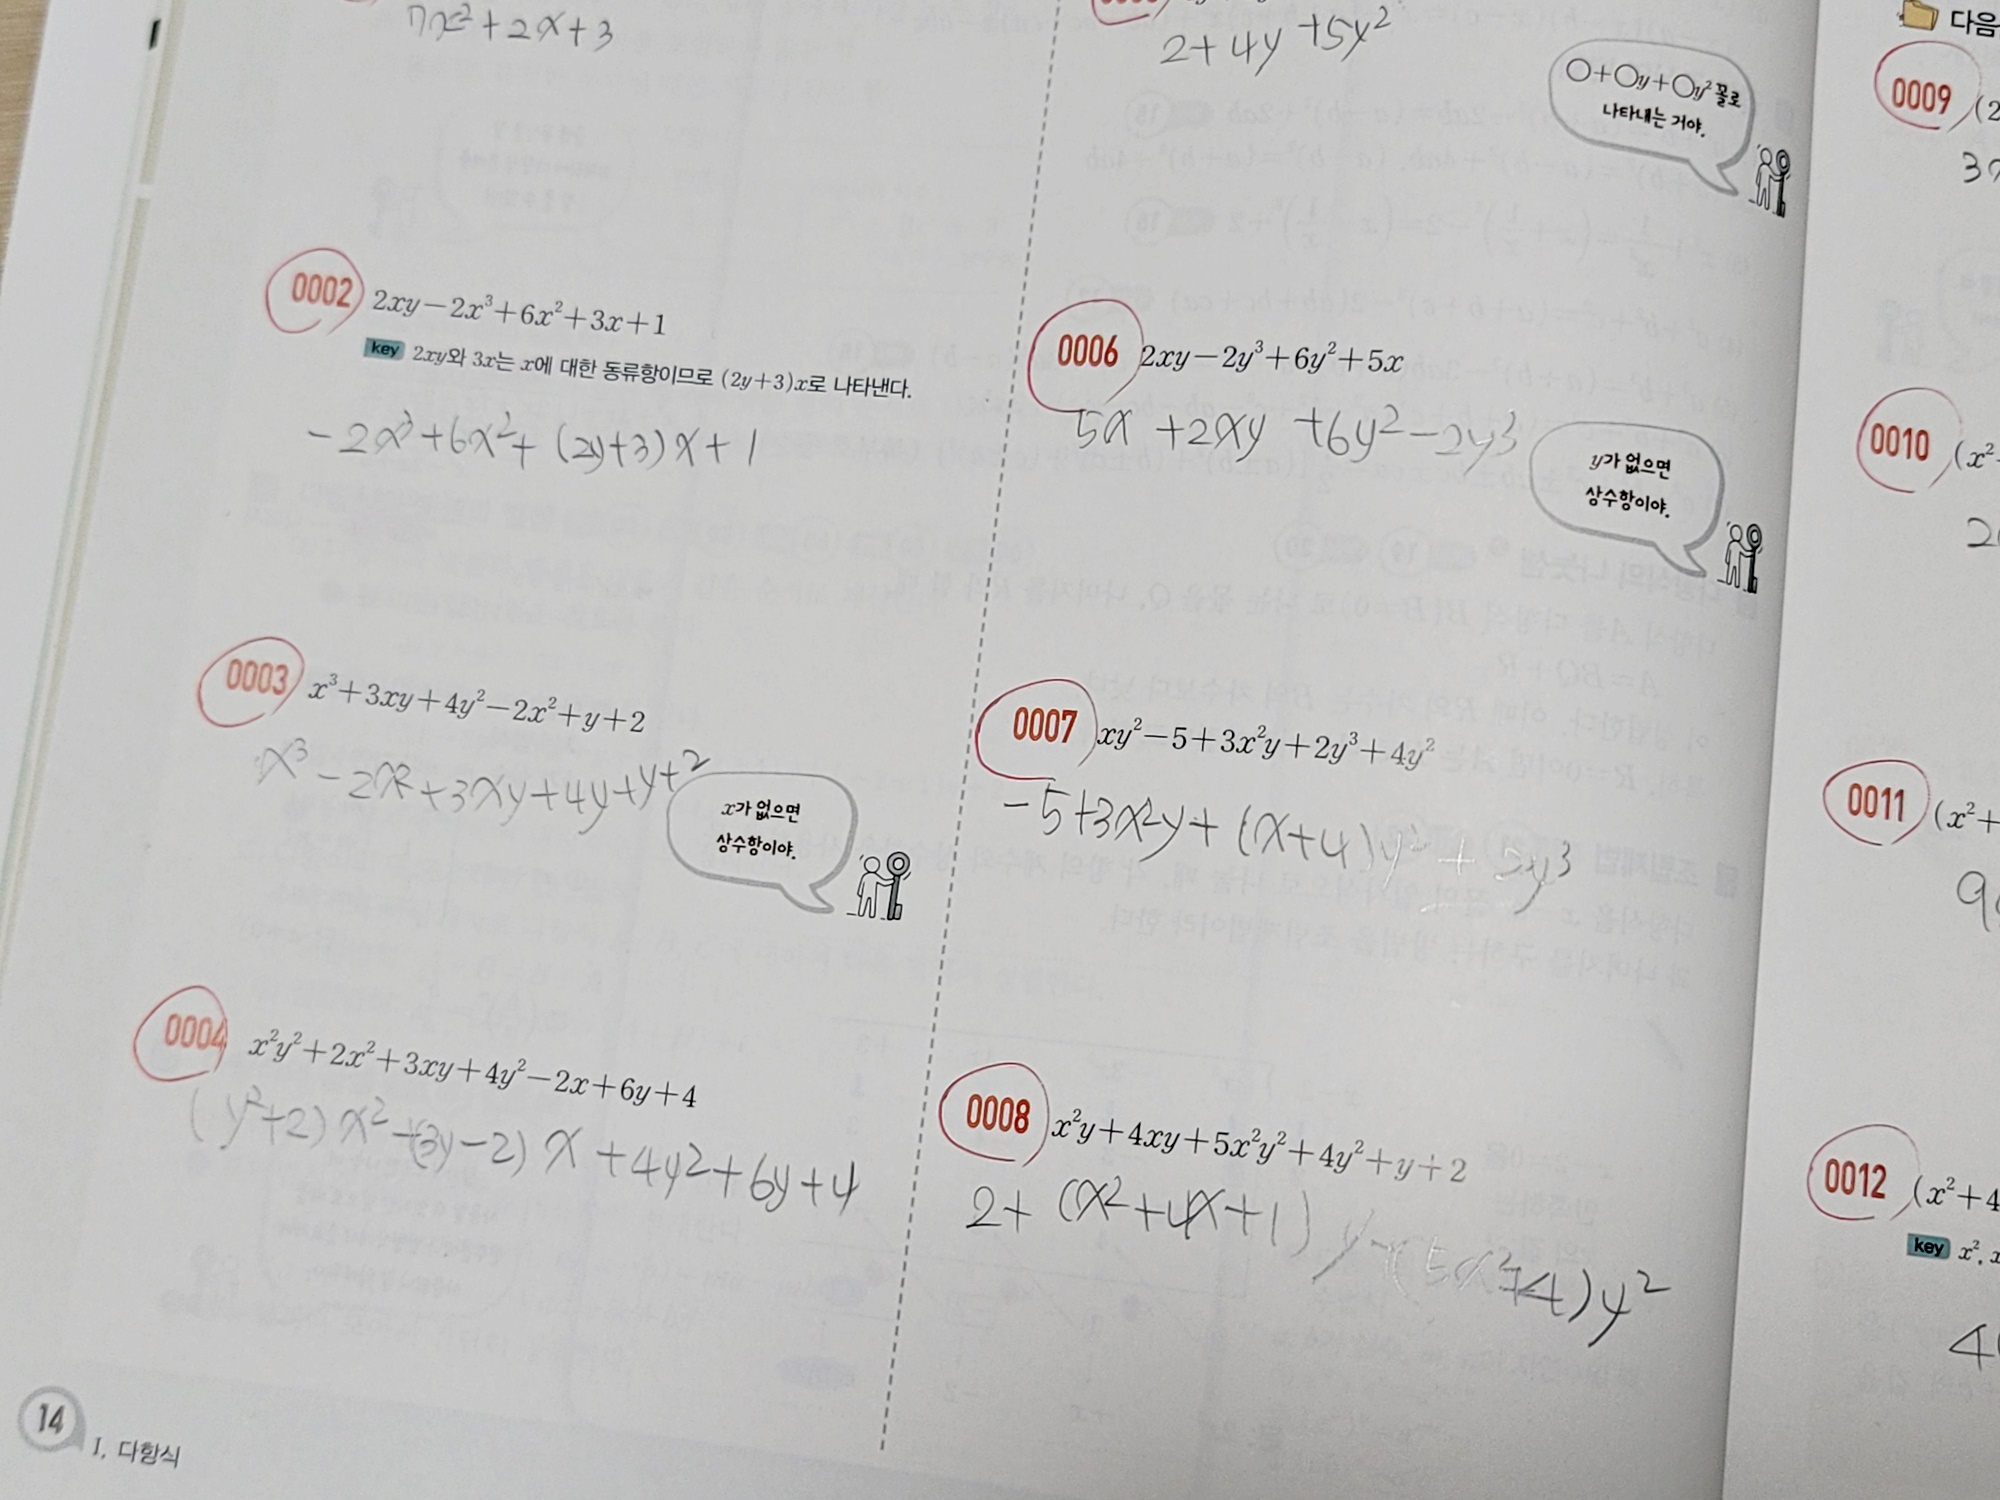 7x²+2x+3
0002 2xy−2x³+6x²+3x+1
key 2xy와 3x는 x에 대한 동류항이므로 (2y+3)x로 나타낸다.
−2x³+6x²+(2y+3)x+1
0003 x³+3xy+4y²−2x²+y+2
x³−2x²+3xy+4y+y+2
x가 없으면
상수항이야.
0004 x²y²+2x²+3xy+4y²−2x+6y+4
(y²+2)x²+(3y−2)x+4y²+6y+4
14
I. 다항식
2+4y+5y²
○+○y+○y² 꼴로
나타내는 거야.
0006 2xy−2y³+6y²+5x
5x+2xy+6y²−2y³
y가 없으면
상수항이야.
0007 xy²−5+3x²y+2y³+4y²
−5+3x²y+(x+4)y²+2y³
0008 x²y+4xy+5x²y²+4y²+y+2
2+(x²+4x+1)y+(5x²+4)y²
다음
0009 (2
3x
0010 (x²
0011 (x²+
0012 (x²+4
key x², x